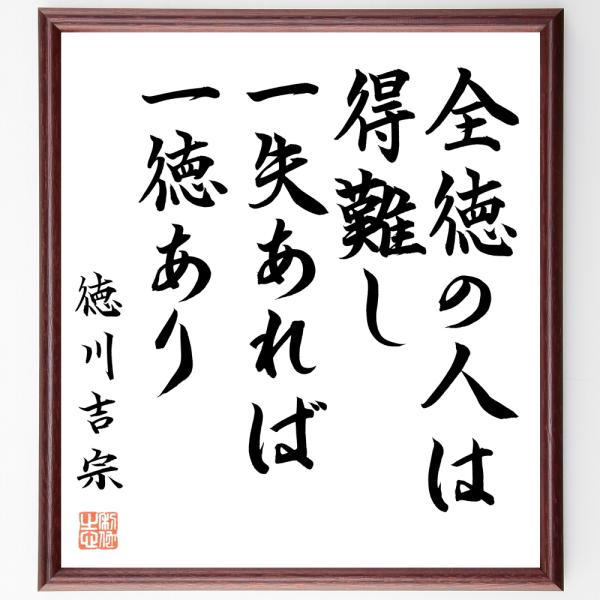 全徳の人は
得難し
一失あれば
一徳あり
徳川吉宗